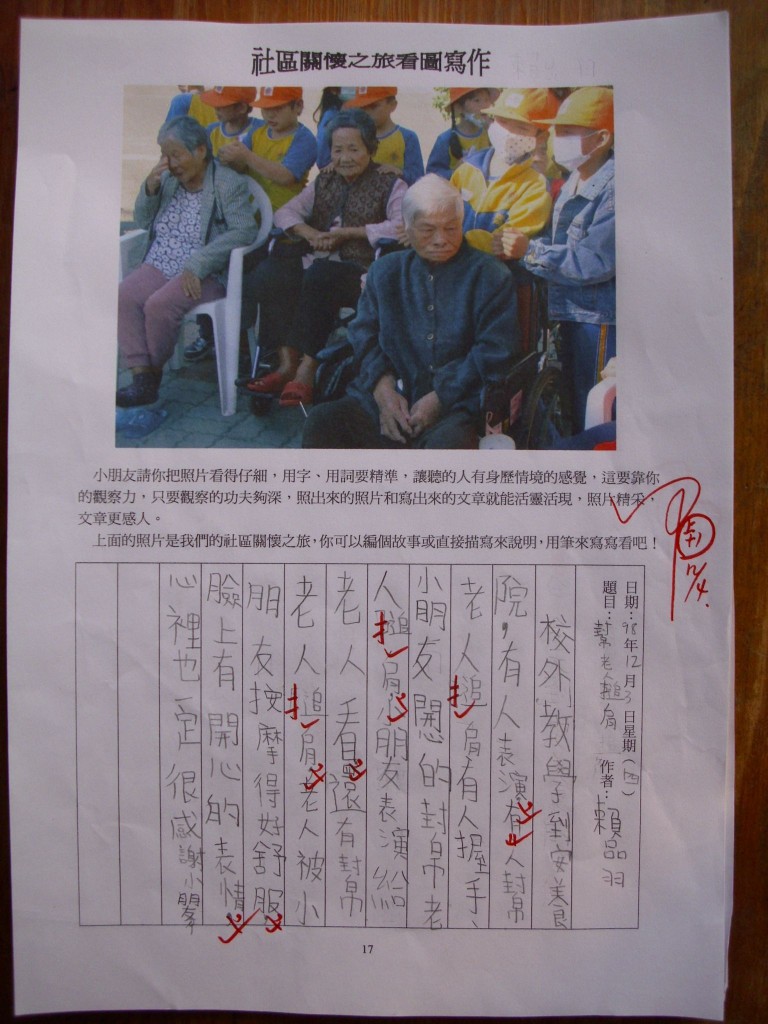 社區關懷之旅看圖寫作
小朋友請你把照片看得仔細，用字、用詞要精準，讓聽的人有身歷情境的感覺，這要靠你
的觀察力，只要觀察的功夫夠深，照出來的照片和寫出來的文章就能活靈活現，照片精采，
文章更感人。
上面的照片是我們的社區關懷之旅，你可以編個故事或直接描寫來說明，用筆來寫寫看吧！
日期：98年12月3日星期（四）
題目：幫老人搥肩 作者：賴品羽
校外教學到安美食
院，有人表演有人封帛
老人追肩有人握手、
小朋友開心的封帛老
人搥肩小朋友表演給
老人看還有封帛
老人追肩老人被小
朋友按摩得好舒服
臉上有開心的表情
心裡也一定很感謝小朋
17